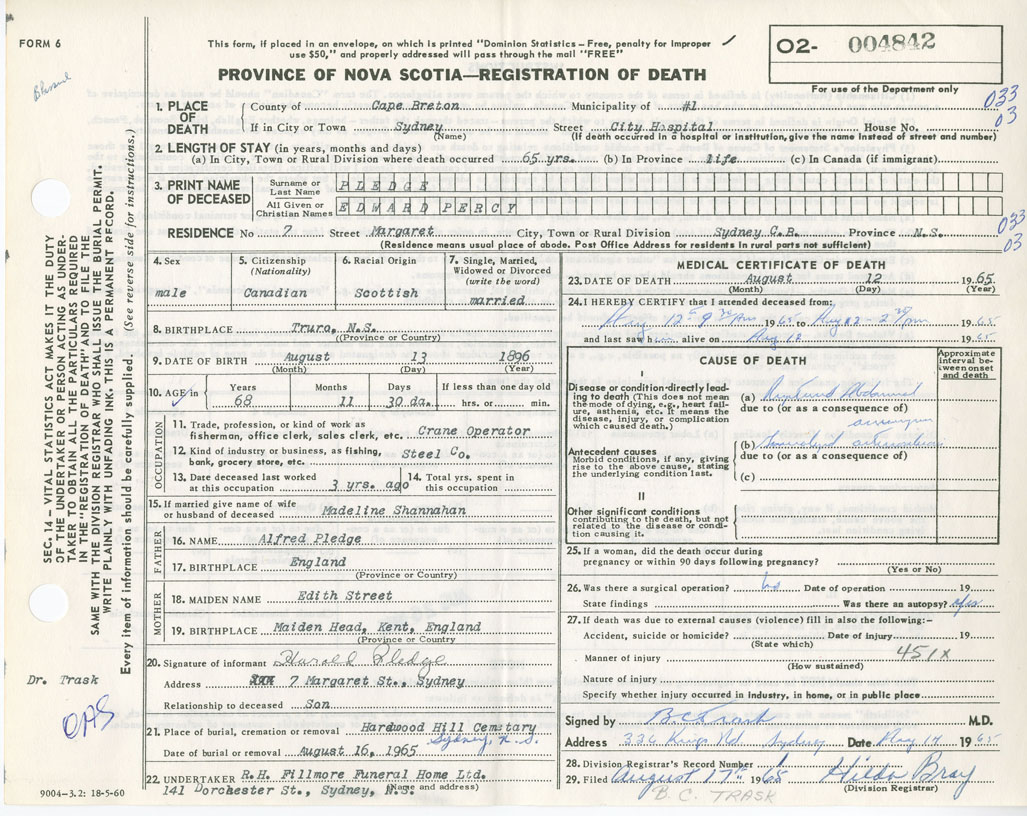 FORM 6
This form, if placed in an envelope, on which is printed "Dominion Statistics—Free, penalty for improper
use $50," and properly addressed will pass through the mail "FREE"
O2- 004842
PROVINCE OF NOVA SCOTIA—REGISTRATION OF DEATH
For use of the Department only
1. PLACE OF DEATH
County of Cape Breton Municipality of #1
033
03
If in City or Town Sydney Street City Hospital House No.
(Name) (If death occurred in a hospital or institution, give the name instead of street and number)
2. LENGTH OF STAY (in years, months and days)
(a) In City, Town or Rural Division where death occurred 65 yrs. (b) In Province life (c) In Canada (if immigrant)
3. PRINT NAME OF DECEASED
Surname or Last Name PLEDGE
All Given or Christian Names EDWARD PERCY
RESIDENCE No 7 Street Margaret City, Town or Rural Division Sydney C.B. Province N.S.
(Residence means usual place of abode. Post Office Address for residents in rural parts not sufficient)
033
03
SEC. 14 - VITAL STATISTICS ACT MAKES IT THE DUTY
OF THE UNDERTAKER OR PERSON ACTING AS UNDER-
TAKER TO OBTAIN ALL THE PARTICULARS REQUIRED
IN THE "REGISTRATION OF DEATH" AND FILE THE
SAME WITH THE DIVISION REGISTRAR WHO SHALL ISSUE THE BURIAL PERMIT.
WRITE PLAINLY WITH UNFADING INK. THIS IS A PERMANENT RECORD.
Every item of information should be carefully supplied. (See reverse side for instructions.)
4. Sex
male
5. Citizenship
(Nationality)
Canadian
6. Racial Origin
Scottish
7. Single, Married,
Widowed or Divorced
(write the word)
married
8. BIRTHPLACE Truro, N.S.
(Province or Country)
9. DATE OF BIRTH August 13 1896
(Month) (Day) (Year)
10. AGE in
Years Months Days If less than one day old
68 11 30 da. hrs. or min.
OCCUPATION
11. Trade, profession, or kind of work as
fisherman, office clerk, sales clerk, etc. Crane Operator
12. Kind of industry or business, as fishing,
bank, grocery store, etc. Steel Co.
13. Date deceased last worked
at this occupation 3 yrs. ago
14. Total yrs. spent in
this occupation
15. If married give name of wife
or husband of deceased Madeline Shannahan
FATHER
16. NAME Alfred Pledge
17. BIRTHPLACE England
(Province or Country)
MOTHER
18. MAIDEN NAME Edith Street
19. BIRTHPLACE Maiden Head, Kent, England
(Province or Country)
20. Signature of informant Harold Pledge
Address 7 Margaret St., Sydney
Relationship to deceased Son
Dr. Trask
OAS
21. Place of burial, cremation or removal Hardwood Hill Cemetary
Sydney, N.S.
Date of burial or removal August 16, 1965
22. UNDERTAKER R.H. Fillmore Funeral Home Ltd.
141 Dorchester St., Sydney, N.S.
(Name and address)
9004-3.2: 18-5-60
MEDICAL CERTIFICATE OF DEATH
23. DATE OF DEATH August 12 1965
(Month) (Day) (Year)
24. I HEREBY CERTIFY that I attended deceased from:
1965 to 1965
and last saw him alive on Aug 12 1965
CAUSE OF DEATH
Approximate
interval be-
tween onset
and death
I
Disease or condition directly lead-
ing to death (This does not mean
the mode of dying, e.g., heart fail-
ure, asthenia, etc. It means the
disease, injury, or complication
which caused death.)
(a) Ruptured Abdominal
due to (or as a consequence of)
aneurysm
Antecedent causes
Morbid conditions, if any, giving
rise to the above cause, stating
the underlying condition last.
(b)
due to (or as a consequence of)
(c)
II
Other significant conditions
contributing to the death, but not
related to the disease or condi-
tion causing it.
25. If a woman, did the death occur during
pregnancy or within 90 days following pregnancy?
(Yes or No)
26. Was there a surgical operation? no Date of operation 19
State findings Was there an autopsy? yes
27. If death was due to external causes (violence) fill in also the following:—
Accident, suicide or homicide? Date of injury 19
(State which)
Manner of injury 451X
(How sustained)
Nature of injury
Specify whether injury occurred in industry, in home, or in public place
Signed by B.C. Trask M.D.
Address 326 Kings Rd Sydney Date 1965
28. Division Registrar's Record Number
29. Filed August 17th 1965 Hilda Bray
(Division Registrar)
B. C. TRASK